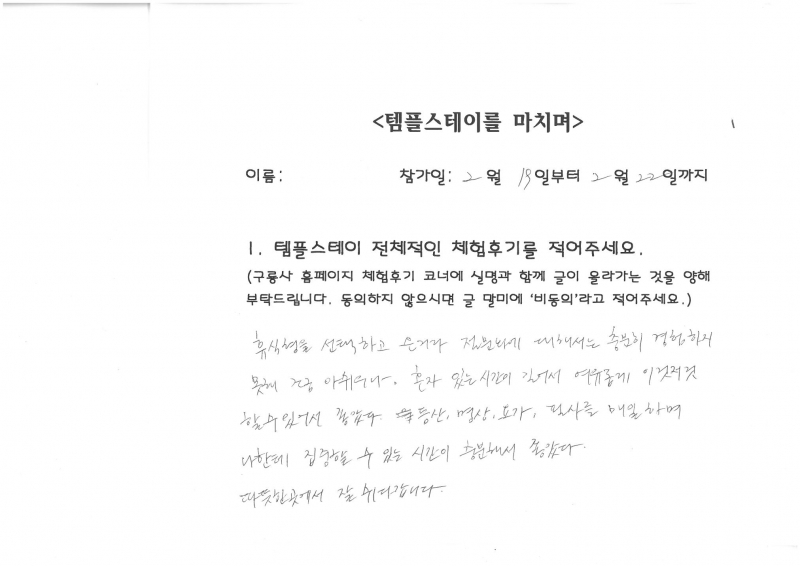 <템플스테이를 마치며>
이름: 참가일: 2 월 19일부터 2 월 22일까지
1. 템플스테이 전체적인 체험후기를 적어주세요.
(구룡사 홈페이지 체험후기 코너에 실명과 함께 글이 올라가는 것을 양해
부탁드립니다. 동의하지 않으시면 글 말미에 '비동의'라고 적어주세요.)
휴식형을 선택하고 온거라 대해서는 충분히 경험하지
못해 조금 아쉬우나, 혼자 있는 시간이 길어서 여유롭게 이것저것
할 수 있어서 좋았다. 등산, 명상, 요가, 필사를 매일 하며
나한테 집중할 수 있는 시간이 충분해서 좋았다.
따뜻한곳에서 잘 쉬다갑니다.